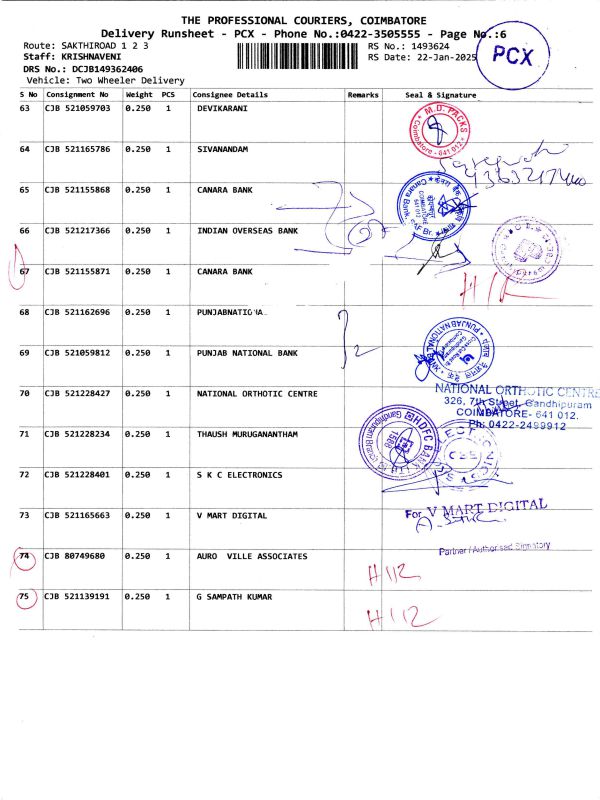 THE PROFESSIONAL COURIERS, COIMBATORE
Delivery Runsheet - PCX - Phone No.:0422-3505555 - Page No.:6
Route: SAKTHIROAD 1 2 3
RS No.: 1493624
Staff: KRISHNAVENI
RS Date: 22-Jan-2025
PCX
DRS No.: DCJB149362406
Vehicle: Two Wheeler Delivery
S No Consignment No Weight PCS Consignee Details Remarks Seal & Signature
63 CJB 521059703 0.250 1 DEVIKARANI
M.D. PACKS
Coimbatore - 641 012.
64 CJB 521165786 0.250 1 SIVANANDAM
65 CJB 521155868 0.250 1 CANARA BANK
Canara Bank
COIMBATORE
641 012
66 CJB 521217366 0.250 1 INDIAN OVERSEAS BANK
67 CJB 521155871 0.250 1 CANARA BANK
68 CJB 521162696 0.250 1 PUNJABNATIO
69 CJB 521059812 0.250 1 PUNJAB NATIONAL BANK
2
PUNJAB NATIONAL BANK
70 CJB 521228427 0.250 1 NATIONAL ORTHOTIC CENTRE
NATIONAL ORTHOTIC CENTRE
326, 7th Street, Gandhipuram
COIMBATORE- 641 012.
Ph: 0422-2499912
71 CJB 521228234 0.250 1 THAUSH MURUGANANTHAM
HDFC BANK LTD
Gandhipuram Branch
72 CJB 521228401 0.250 1 S K C ELECTRONICS
73 CJB 521165663 0.250 1 V MART DIGITAL
For V MART DIGITAL
Partner / Authorised Signatory
74 CJB 80749680 0.250 1 AURO VILLE ASSOCIATES
75 CJB 521139191 0.250 1 G SAMPATH KUMAR